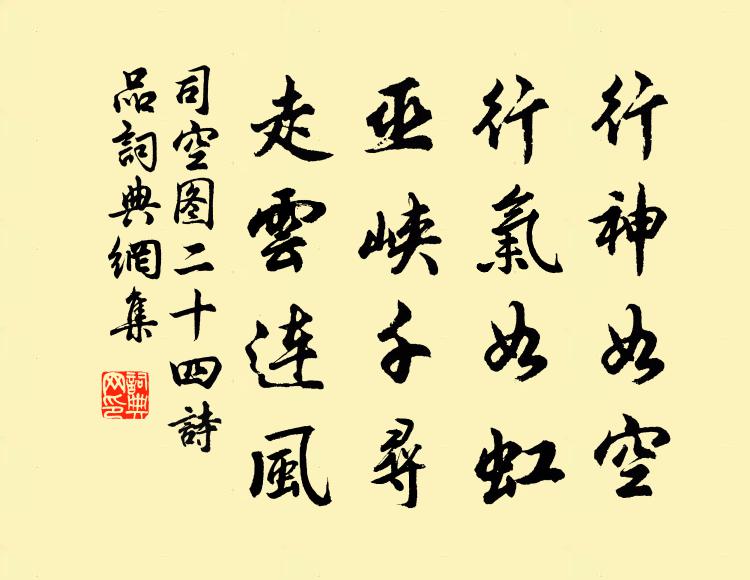 行神如空
行氣如虹
巫峽千尋
走雲連風
司空图二十四詩
品詞典網集
詞典
网印